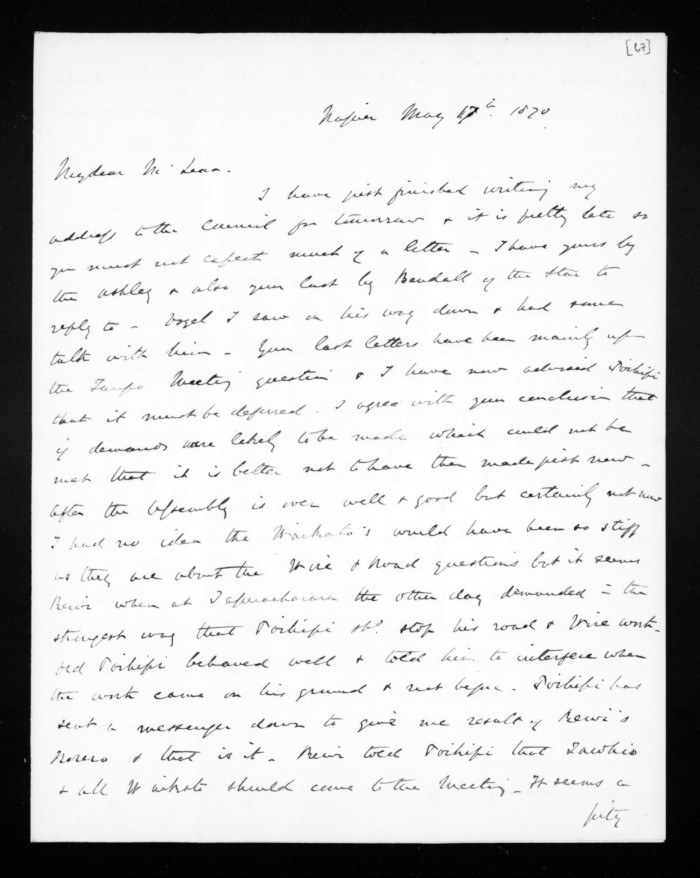 [67]
Napier May 17th. 1870
My dear McLean.
I have just finished writing my
address to the Council for tomorrow & it is pretty late so
you must not expect much of a letter - I have yours by
the Ashley & also your last by Bendall of the Star to
reply to - Vogel I saw on his way down & had some
talk with him - Your last letters have been mainly upon
the Taupo Meeting question & I have now advised Poihipi
that it must be deferred. I agree with your conclusion that
if demands were likely to be made which could not be
met that it is better not to have them made just now -
After the Assembly is over well & good but certainly not now
I had no idea the Waikato's would have been so stiff
as they are about the Wire & Road questions but it seems
Rewi when at Tapuaeharuru the other day demanded in the
strongest way that Poihipi shd. stop his road & Wire work -
Old Poihipi behaved well & told him to interfere when
the work came on his ground & not before. Poihipi has
sent a messenger down to give me result of Rewi's
Korero & that is it - Rewi told Poihipi that Tawhiao
& all Waikato should come to the Meeting - It seems a
pity